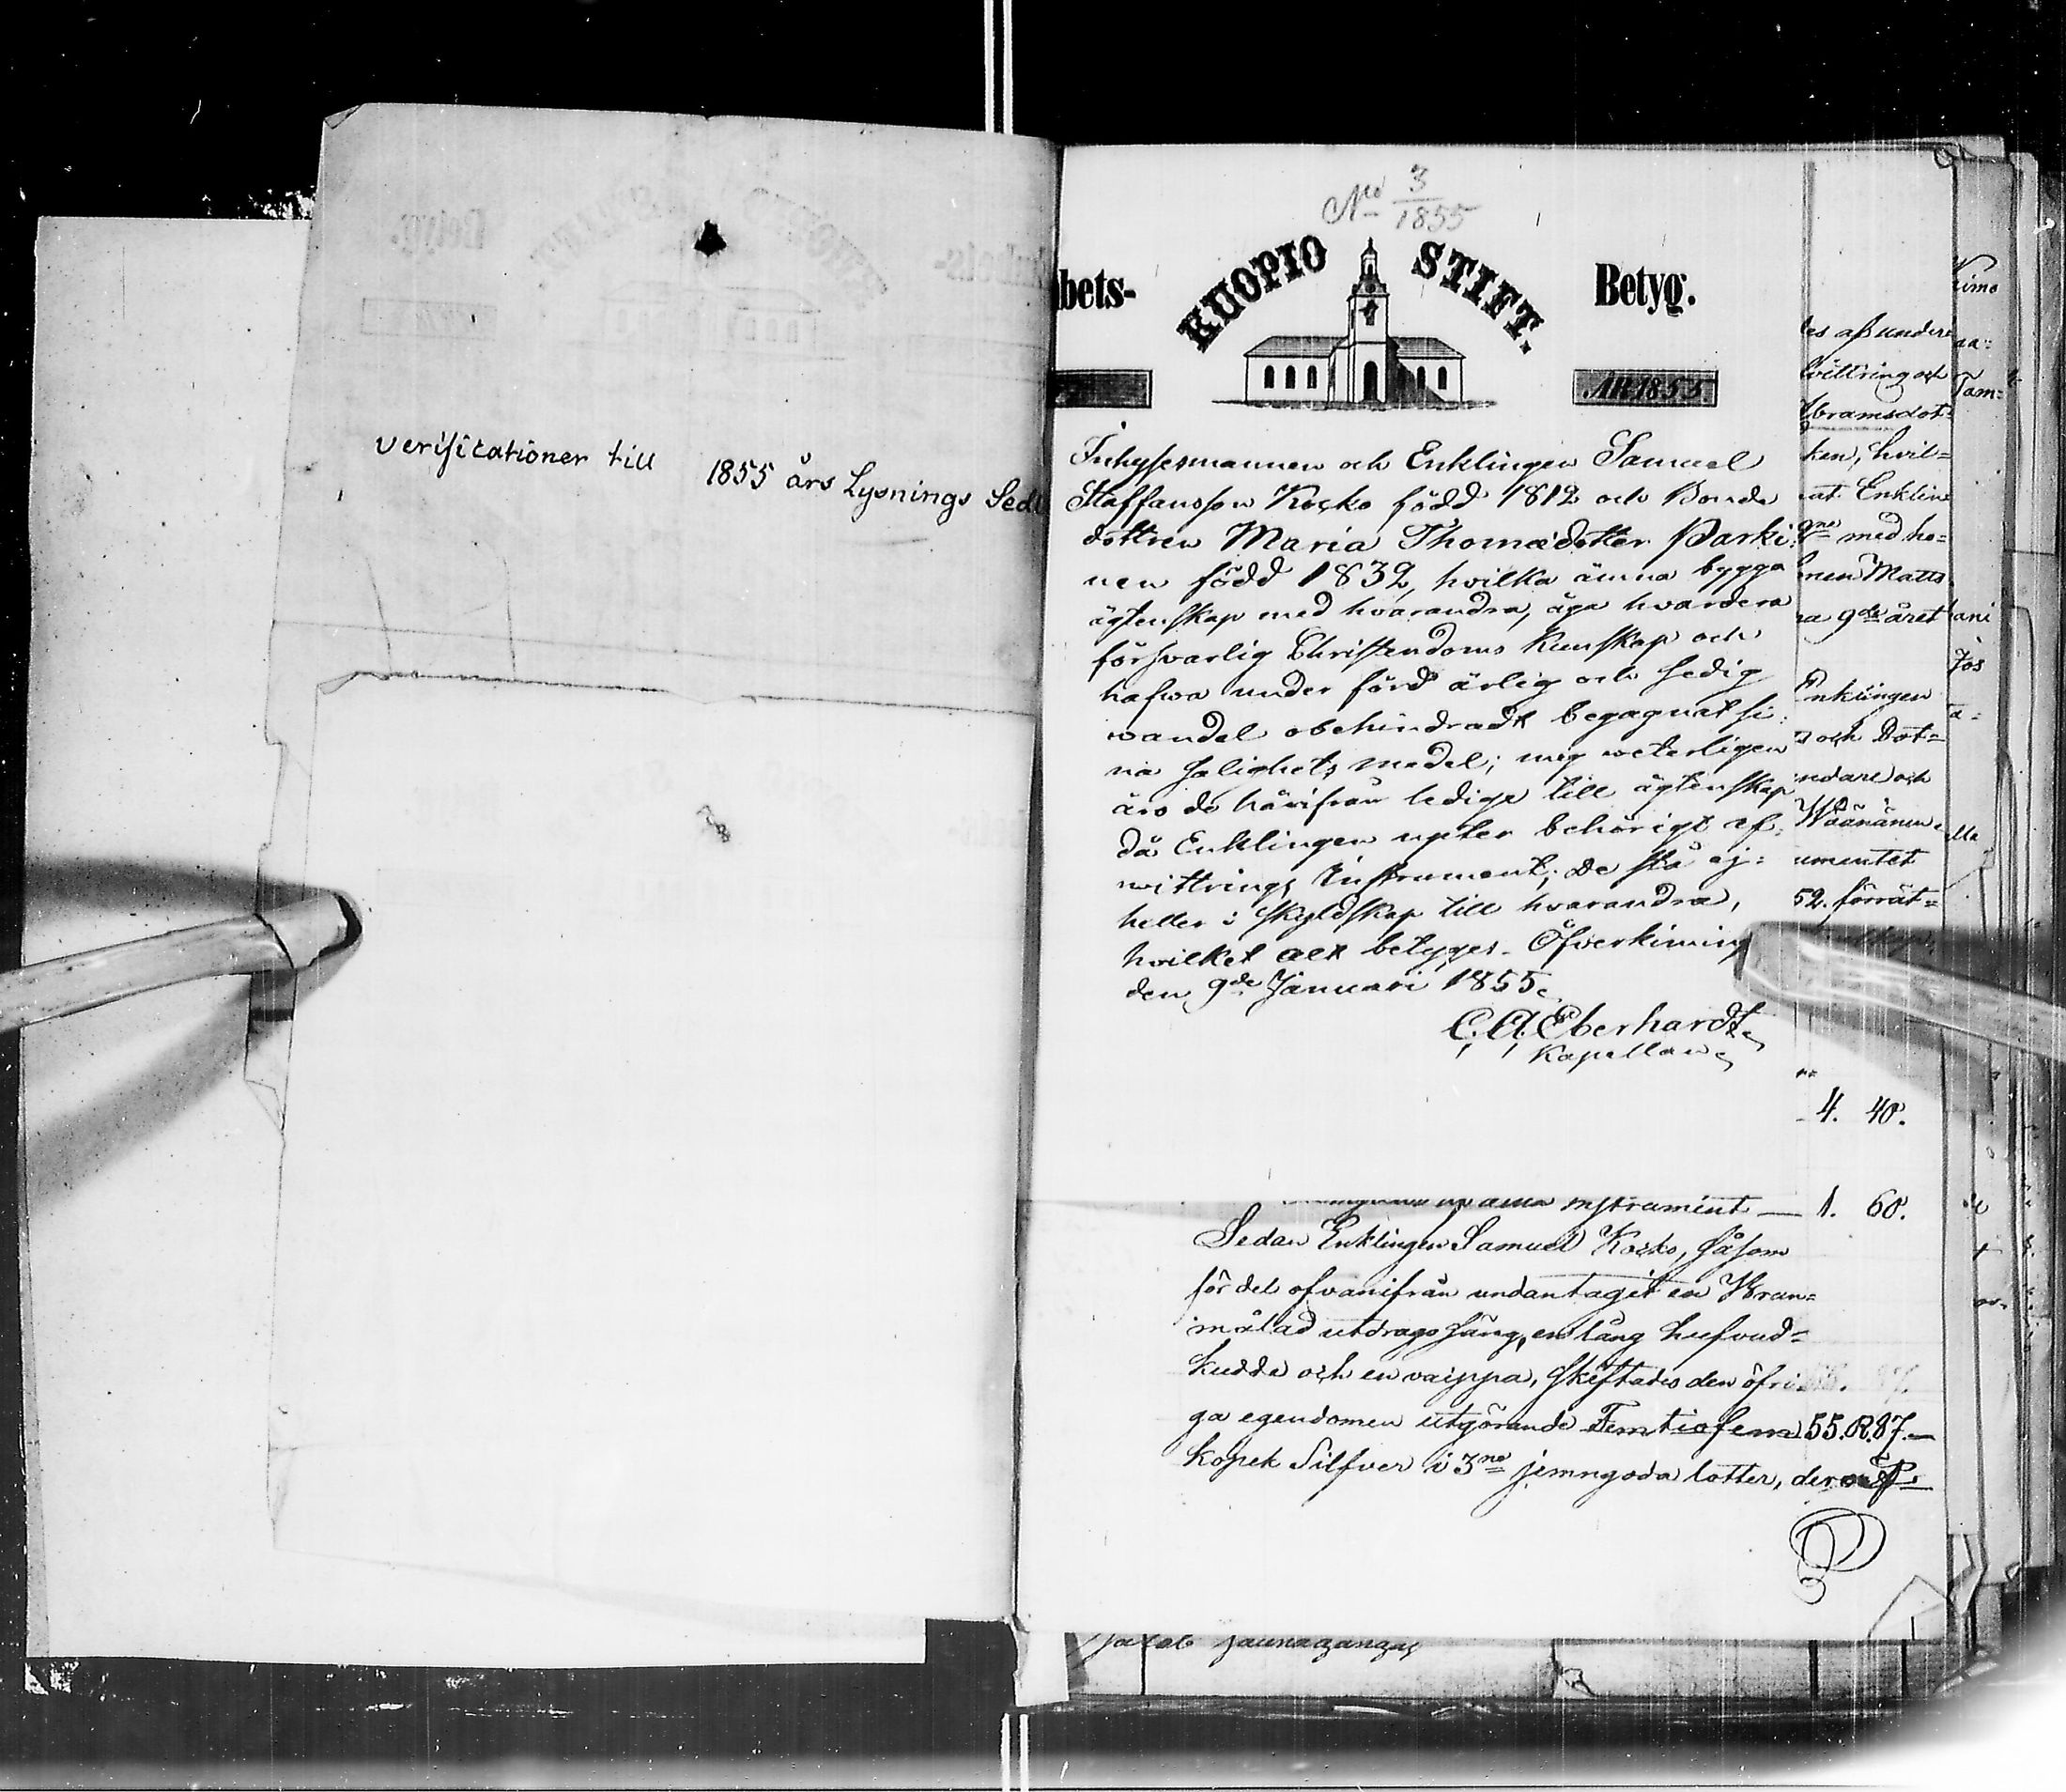 verifitationer till 1855 års Lysnings Sedl
No 3/1855
bets- KUOPIO STIFT. Betyg.
ÅR 1855.
Inhysesmannen och Enklingen Samuel
Staffansson Kocko född 1812 och Bonde
dottren Maria Thomædotter Parki
nen född 1832, hvilka ämna bygga
ägtenskap med hvarandra, äga hvardera
försvarlig Christendoms Kunskap och
hafwa under förd ärlig och sedig
wandel obehindradt begagnat si:
na salighets medel; mig veterligen
äro de härifrån ledige till ägtenskap
då Enklingen upter behörigt af:
wittrings Instrument; de stå ej:
heller i skyldskap till hvarandra,
hvilket alt betyges. Öfverkiming
den 9de Januari 1855.
C. A. Eberhardt
Kapellan
instrument — 1. 60.
Sedan Enklingen Samuel Kocko, såsom
för del ofvanifrån undantagit en
målad utdrags säng, en lång hufvud=
kudde och en vaippa, skiftades den öfri
ga egendomen utgörande Femtiofem 55.R.87.—
kopek Silfver i 3ne jemngoda lotter, deraf
les assundere
wittring och
Abramsdot=
ken, hvil=
Enklin
med ho=
Matts
ra 9de året
Enklingen
och Dot=
ndare och
Wäänänen
umentet
52. förrät=
4. 40.
Kimo
Tam=